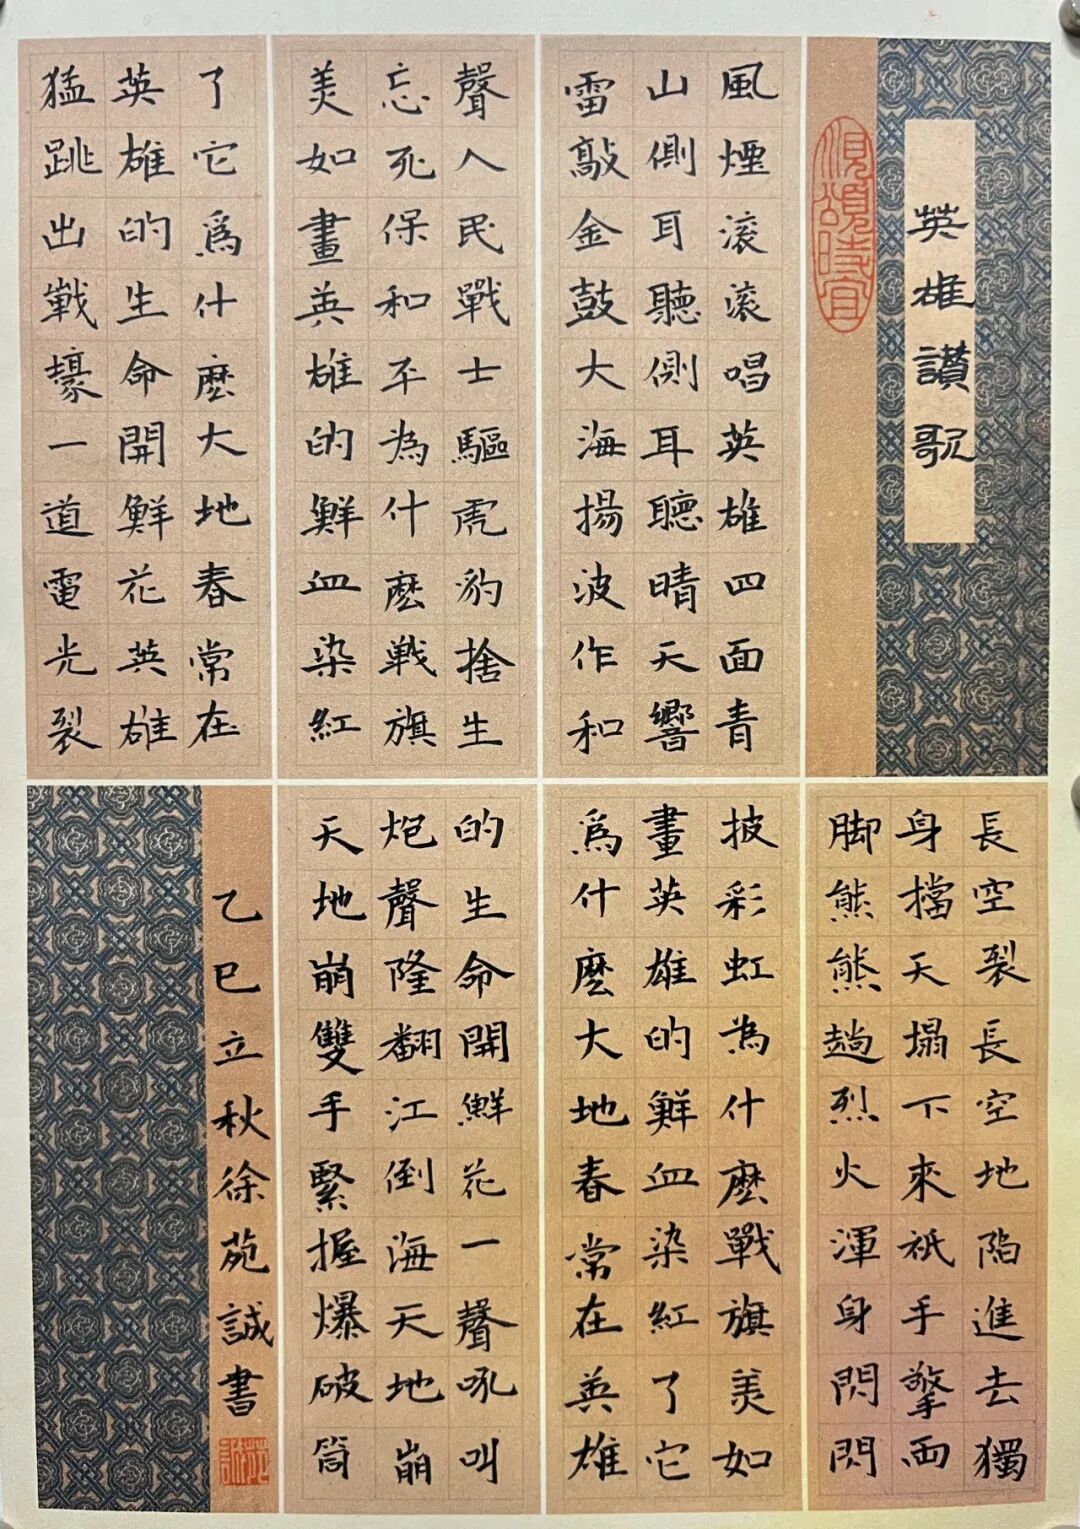 英雄讃歌
順頌時宜
風煙滚滚唱英雄四面青
山側耳聽側耳聽晴天響
雷敲金鼓大海揚波作和
聲人民戰士驅虎豹捨生
忘死保和平為什麼戰旗
美如畫英雄的鮮血染紅
了它爲什麼大地春常在
英雄的生命開鮮花英雄
猛跳出戰壕一道電光裂
長空裂長空地陷進去獨
身擋天塌下來祇手擎兩
脚熊熊趟烈火渾身閃閃
披彩虹為什麼戰旗美如
畫英雄的鮮血染紅了它
爲什麼大地春常在英雄
的生命開鮮花一聲吼叫
炮聲隆翻江倒海天地崩
天地崩雙手緊握爆破筒
乙巳立秋徐苑誠書
苑誠